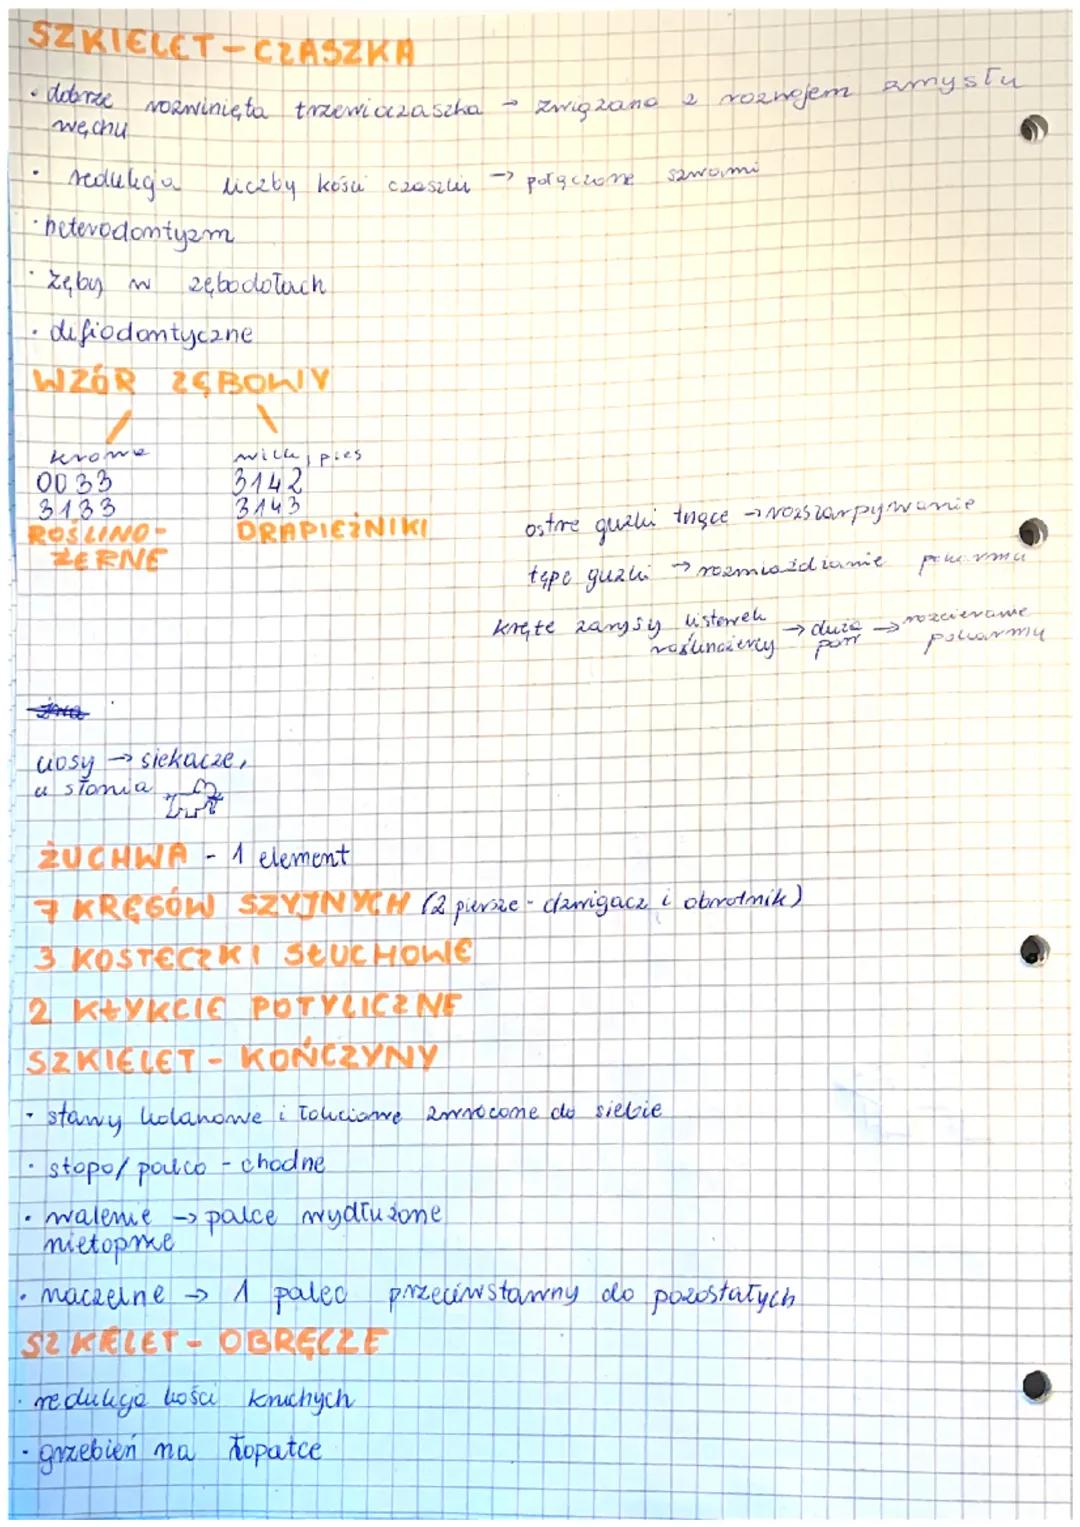 SZKIELET - CZASZKA
· dobrze rozwinięta trzewioczaszka → związana z rozwojem zmysłu
węchu
· redukcja liczby kości czaszki → połączone szwami
· heterodontyzm
· zęby w zębodołach
· difiodontyczne
WZÓR ZĘBOWY
krowa
wilk, pies
0033
3142
3133
3143
ROŚLINO-
ŻERNE
DRAPIEŻNIKI
ostre guzki tnące → rozszarpywanie
tępe guzki → rozmiażdżanie pokarmu
kręte zarysy listewek → duża → rozcieranie
roślinożercy pow pokarmu
ciosy → siekacze,
u słonia
ŻUCHWA - 1 element
7 KRĘGÓW SZYJNYCH (2 pierwsze - dźwigacz i obrotnik)
3 KOSTECZKI SŁUCHOWE
2 KŁYKCIE POTYLICZNE
SZKIELET - KOŃCZYNY
· stawy kolanowe i łokciowe zwrócone do siebie
· stopo/palco - chodne
· walenie → palce wydłużone
nietoperze
· naczelne → 1 palec przeciwstawny do pozostałych
SZKIELET - OBRĘCZE
· redukcja kości kruchych
· grzebień na łopatce